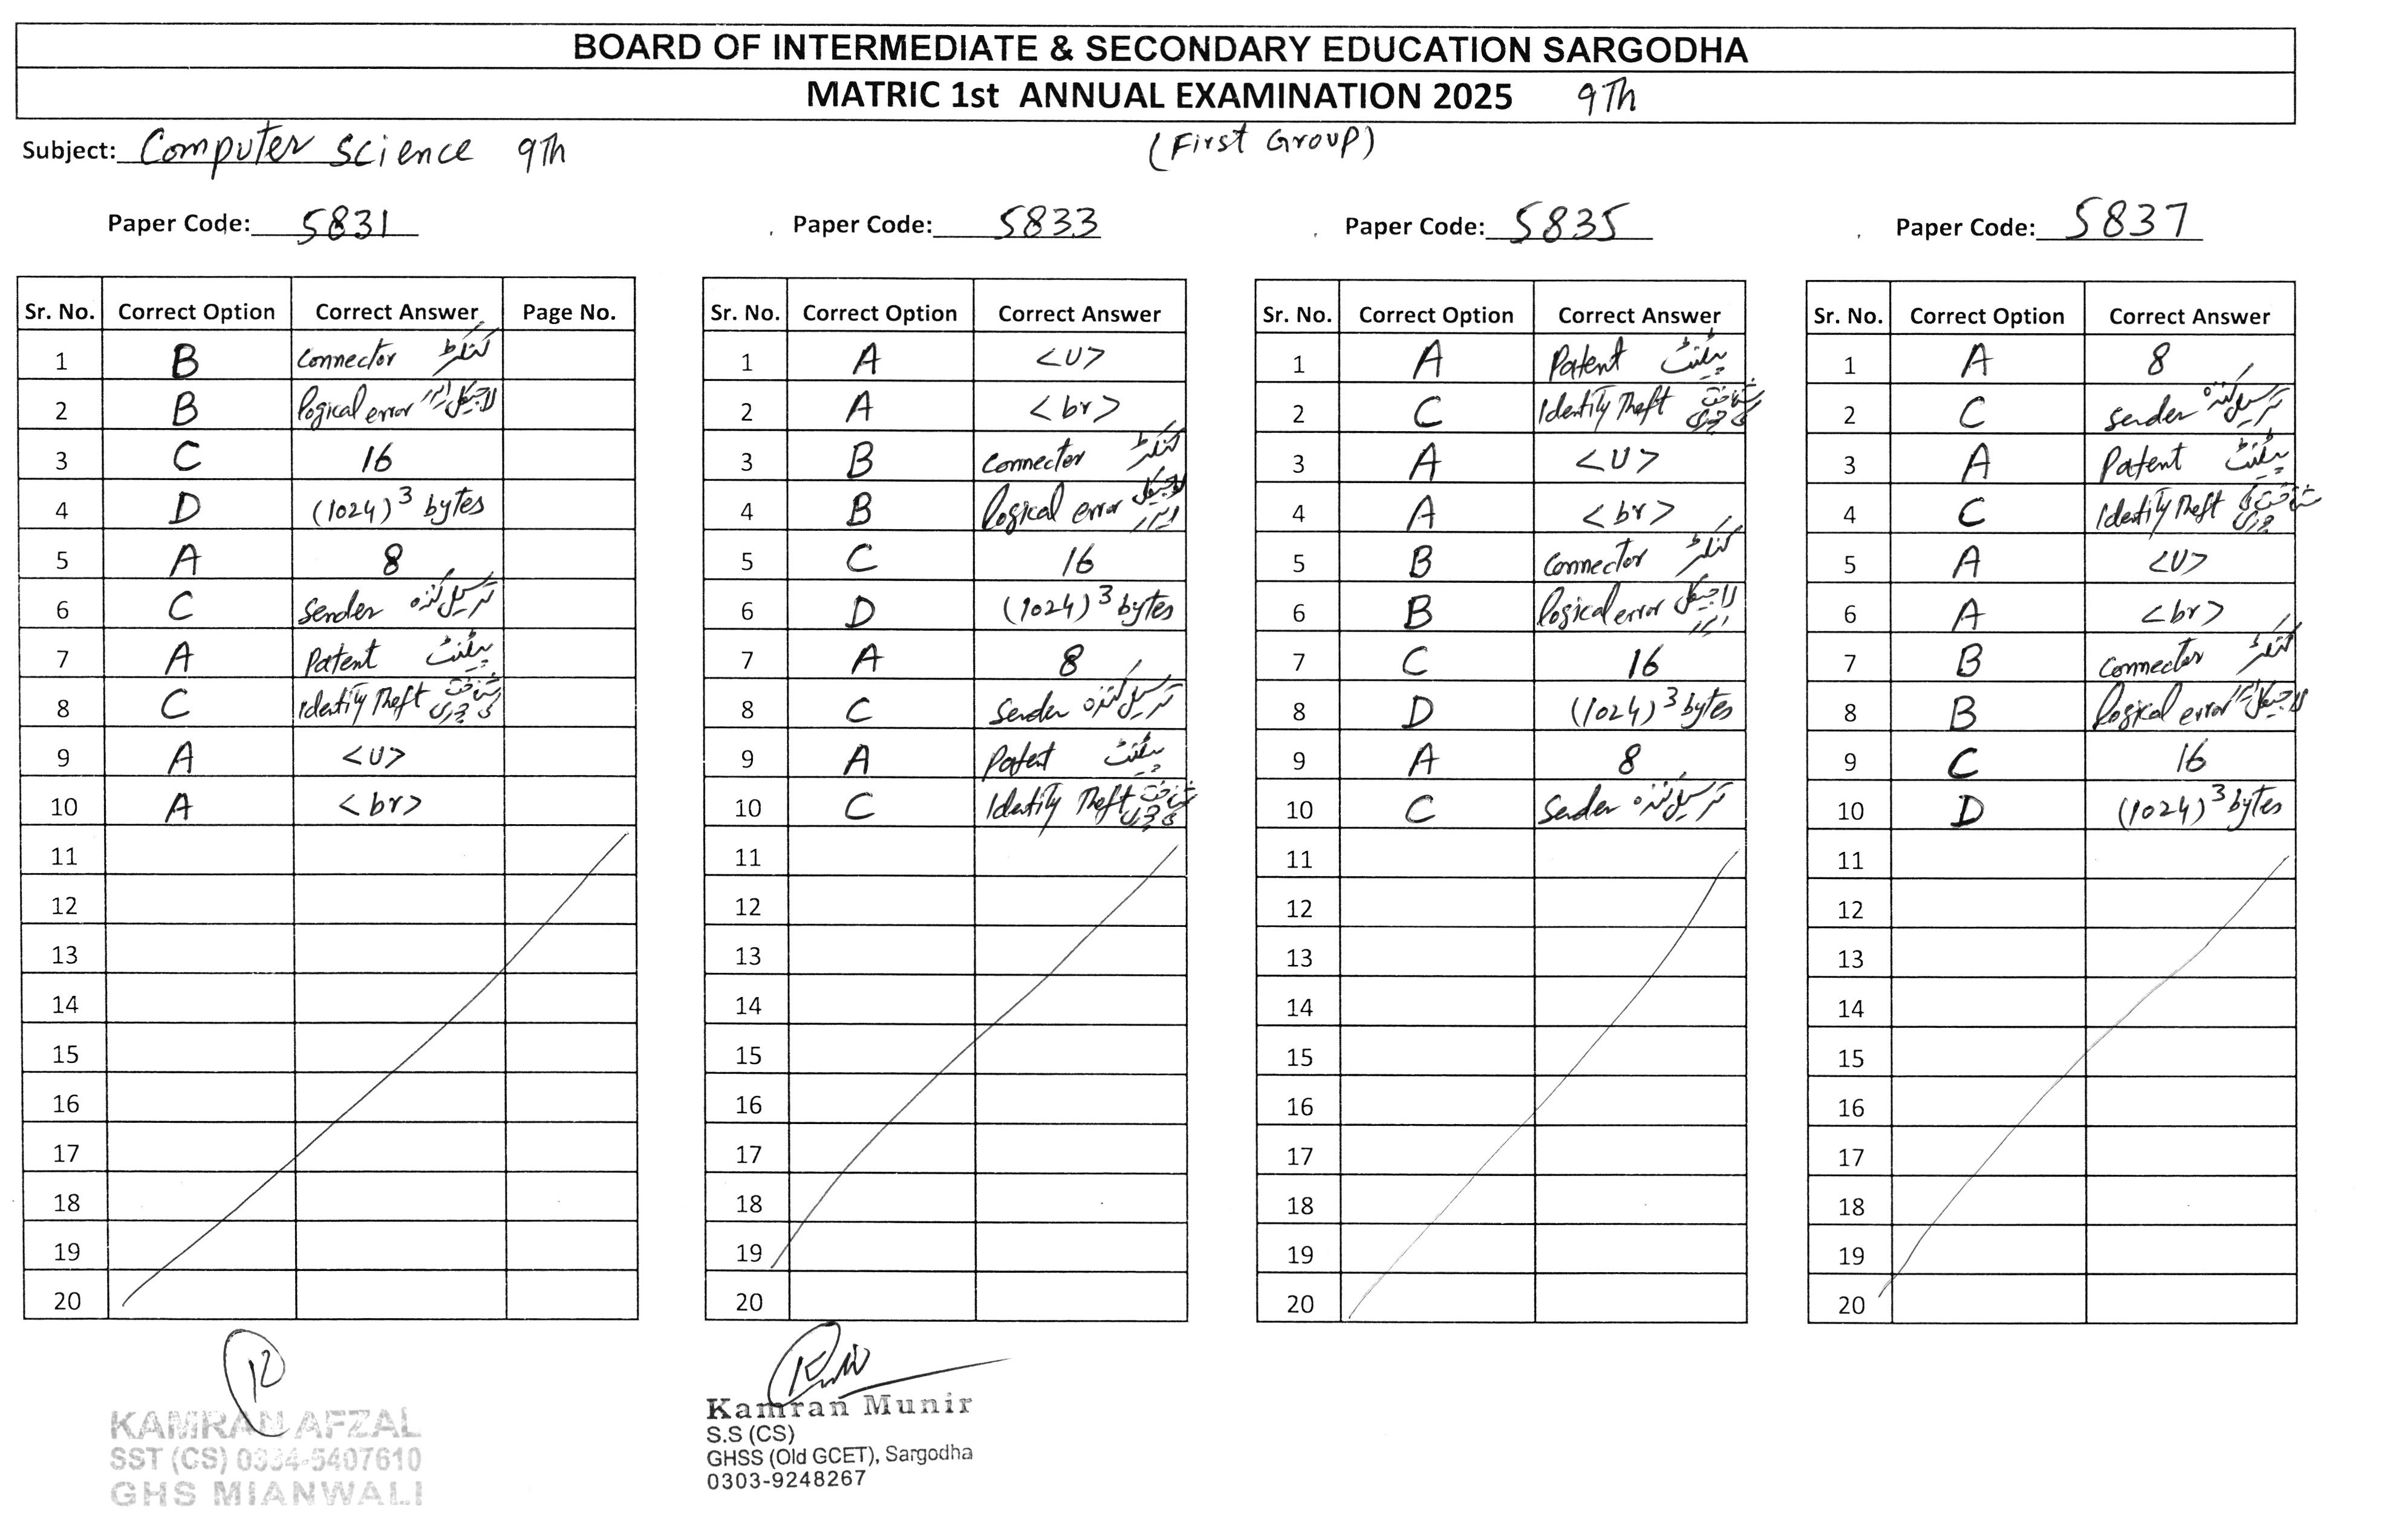 BOARD OF INTERMEDIATE & SECONDARY EDUCATION SARGODHA
MATRIC 1st ANNUAL EXAMINATION 2025 9Th
Subject: Computer Science 9Th (First Group)
Paper Code: 5831
Sr. No. Correct Option Correct Answer Page No.
1 B Connector کنیکٹر
2 B logical error لاجیکل ایرر
3 C 16
4 D (1024)³ bytes
5 A 8
6 C Sender ترسیل کنندہ
7 A Patent پیٹنٹ
8 C Identity Theft شناخت کی چوری
9 A <U>
10 A <br>
11
12
13
14
15
16
17
18
19
20
Paper Code: 5833
Sr. No. Correct Option Correct Answer
1 A <U>
2 A <br>
3 B Connector کنیکٹر
4 B logical error لاجیکل ایرر
5 C 16
6 D (1024)³ bytes
7 A 8
8 C Sender ترسیل کنندہ
9 A Patent پیٹنٹ
10 C Identity Theft شناخت کی چوری
11
12
13
14
15
16
17
18
19
20
Paper Code: 5835
Sr. No. Correct Option Correct Answer
1 A Patent پیٹنٹ
2 C Identity Theft شناخت کی چوری
3 A <U>
4 A <br>
5 B Connector کنیکٹر
6 B logical error لاجیکل ایرر
7 C 16
8 D (1024)³ bytes
9 A 8
10 C Sender ترسیل کنندہ
11
12
13
14
15
16
17
18
19
20
Paper Code: 5837
Sr. No. Correct Option Correct Answer
1 A 8
2 C Sender ترسیل کنندہ
3 A Patent پیٹنٹ
4 C Identity Theft شناخت کی چوری
5 A <U>
6 A <br>
7 B Connector کنیکٹر
8 B logical error لاجیکل ایرر
9 C 16
10 D (1024)³ bytes
11
12
13
14
15
16
17
18
19
20
KAMRAN AFZAL
SST (CS) 0334-5407610
GHS MIANWALI
Kamran Munir
S.S (CS)
GHSS (Old GCET), Sargodha
0303-9248267